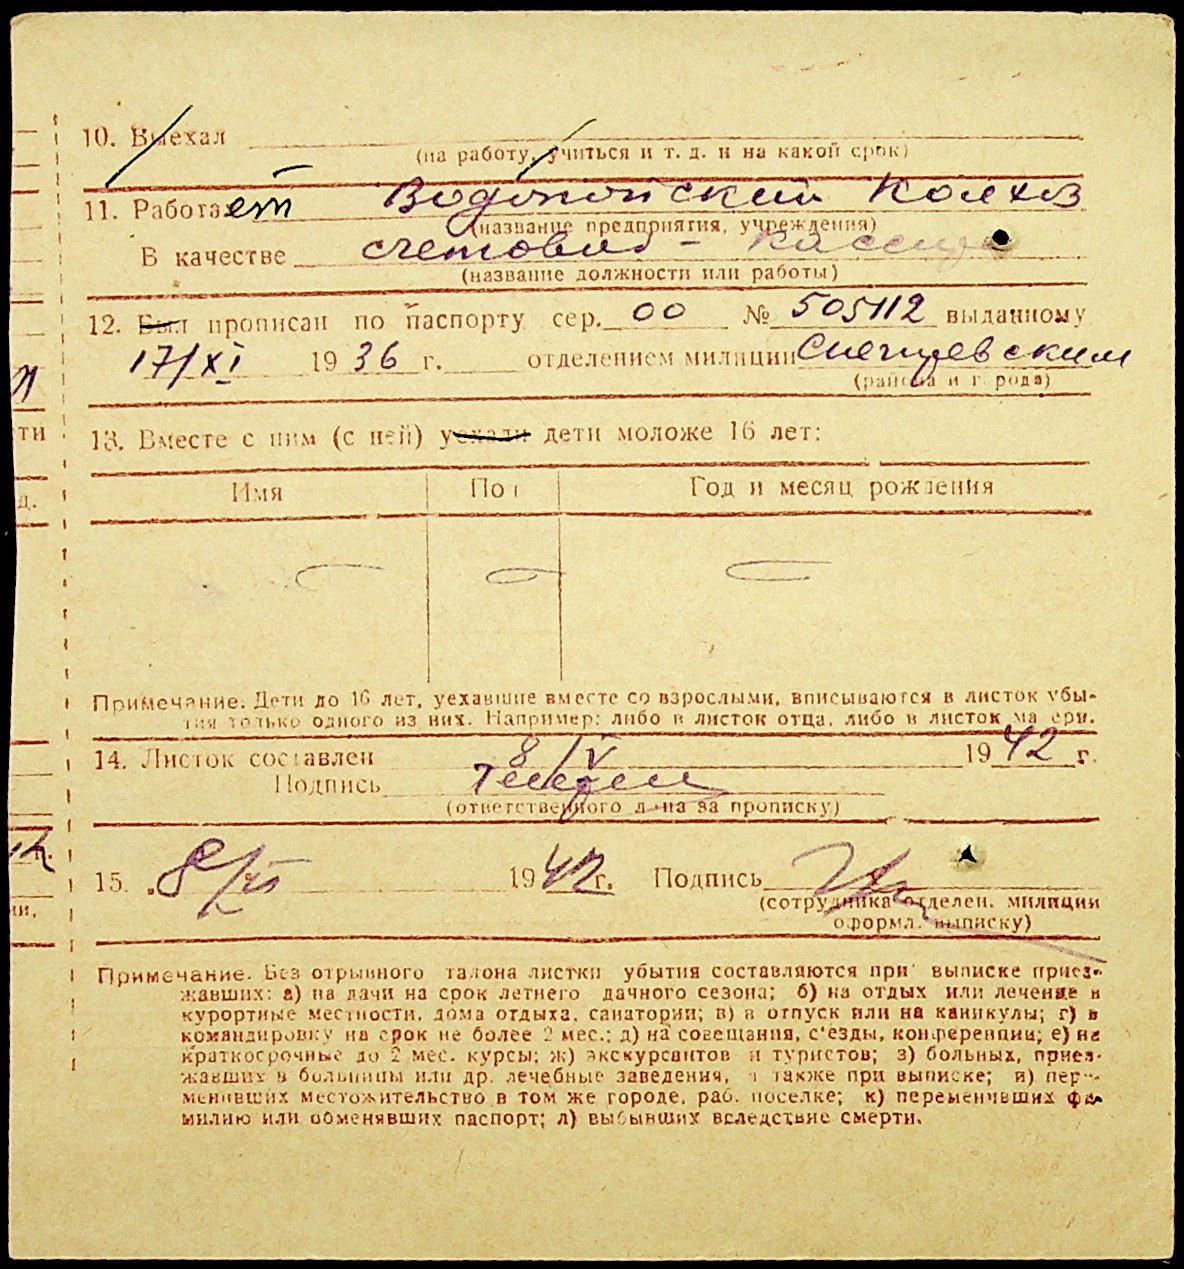 10. Выехал
(на работу, учиться и т. д. и на какой срок)
11. Работает Водопойский Колхоз
(название предприятия, учреждения)
В качестве счетовод - кассир
(название должности или работы)
12. Был прописан по паспорту сер. 00 № 505112 выданному
17/XI 1936 г. отделением милиции
(района и города)
13. Вместе с ним (с ней) уехали дети моложе 16 лет:
Имя Пол Год и месяц рождения
Примечание. Дети до 16 лет, уехавшие вместе со взрослыми, вписываются в листок убы-
тия только одного из них. Например: либо в листок отца, либо в листок матери.
14. Листок составлен 8/V 1942 г.
Подпись
(ответственного д на за прописку)
15. 8/VI 1942 г. Подпись
(сотрудника отделен. милиции
оформл. выписку)
Примечание. Без отрывного талона листки убытия составляются при выписке приез-
жавших: а) на дачи на срок летнего дачного сезона; б) на отдых или лечение в
курортные местности, дома отдыха, санатории; в) в отпуск или на каникулы; г) в
командировку на срок не более 2 мес.; д) на совещания, с'езды, конференции; е) на
краткосрочные до 2 мес. курсы; ж) экскурсантов и туристов; з) больных, приез-
жавших в больницы или др. лечебные заведения, а также при выписке; и) пере-
менивших местожительство в том же городе, раб. поселке; к) переменивших фа-
милию или обменявших паспорт; л) выбывших вследствие смерти.